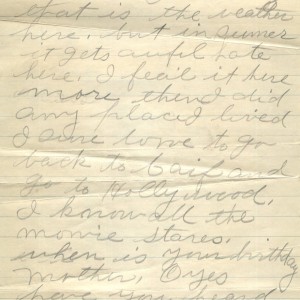 that is the weather
here. but in summer
it gets aufil hote
here. I feail it here
more then I did
any place I lived
I sure love to go
back to Caif and
go to Hollywood,
I know all the
movie stares.
when is your birthday
Mother, O yes
have you heard